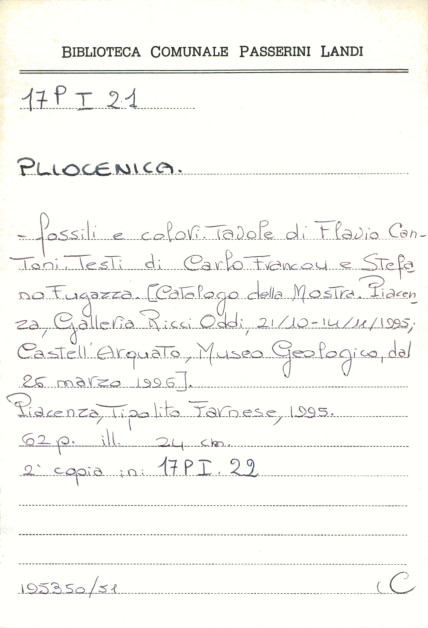 BIBLIOTECA COMUNALE PASSERINI LANDI
17P I 21
PLIOCENICA.
- fossili e colori. Tavole di Flavio Can-
Toni. Testi di Carlo Francou e Stefa
no Fugazza. [Catalogo della Mostra. Piacen-
za, Galleria Ricci Oddi, 21/10-14/11/1995;
Castell'Arquato, Museo Geologico, dal
26 marzo 1996].
Piacenza, Tipolito Farnese, 1995.
62 p. ill. 24 cm.
2ª copia in: 17P I. 22
195350/51
(C